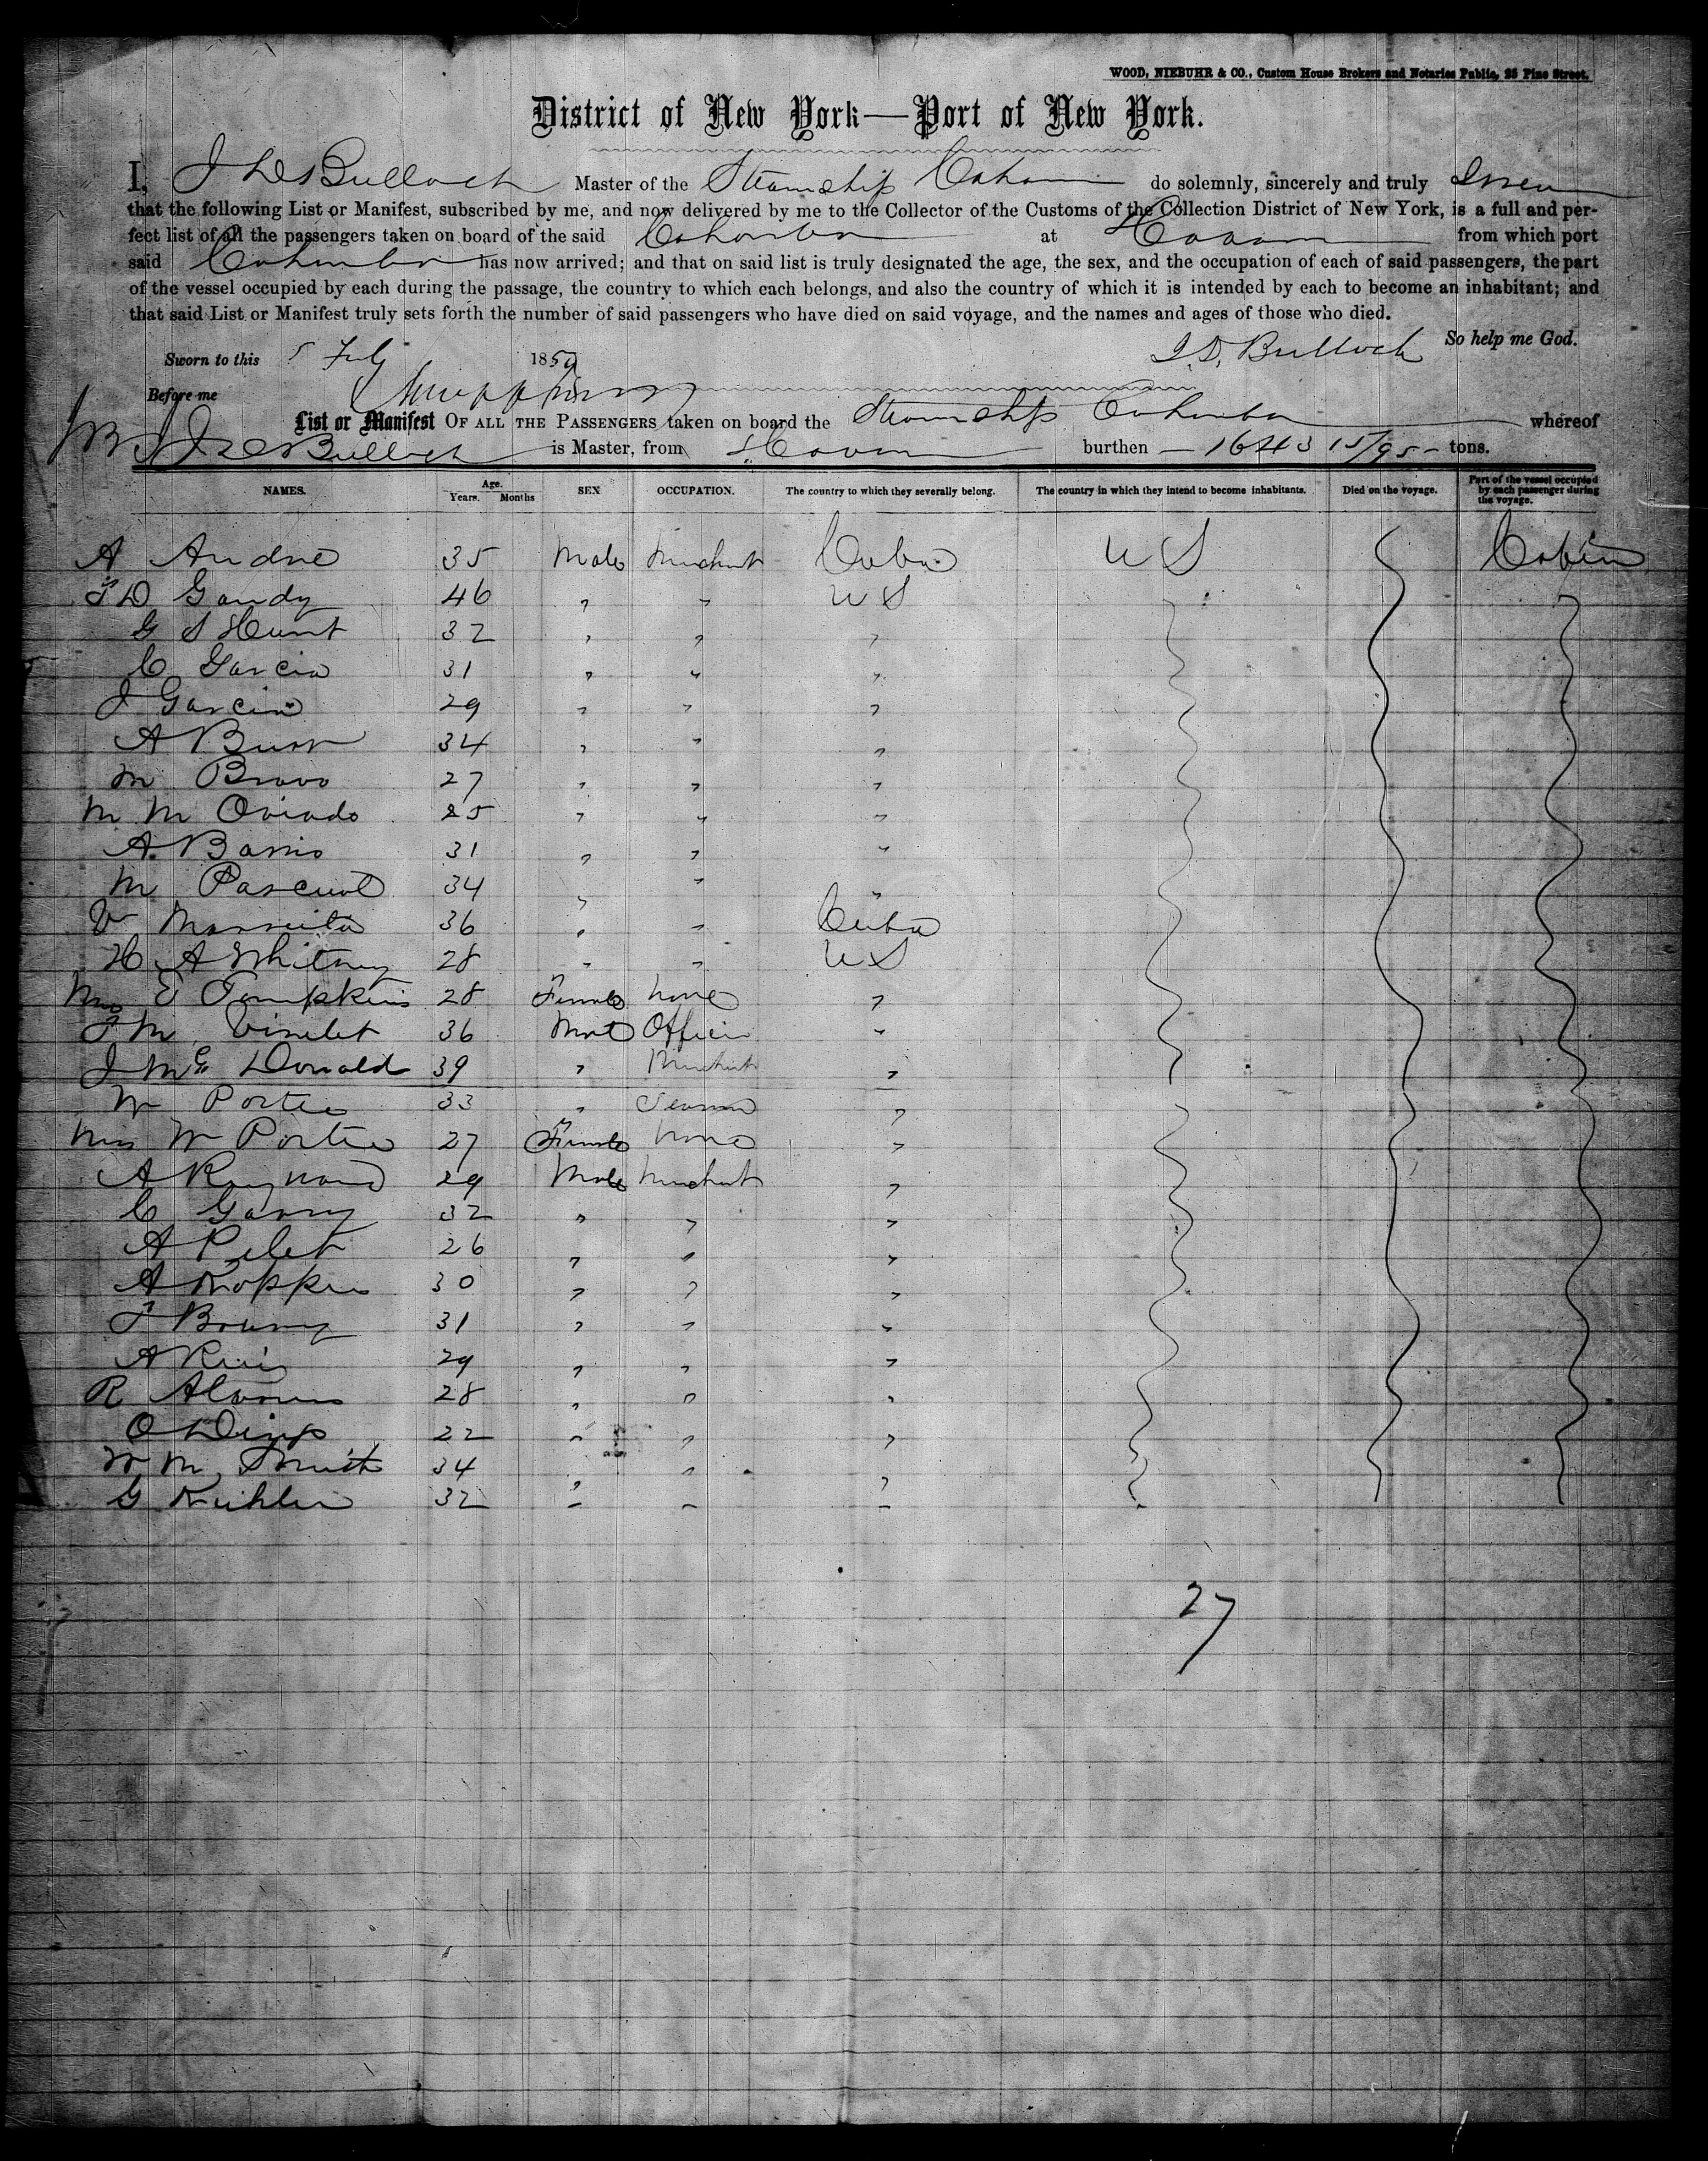 WOOD, NIEBUHR & CO., Custom House Brokers and Notaries Public, 25 Pine Street.
District of New York—Port of New York.
I, J D Bulloch Master of the Steamship Cahawba do solemnly, sincerely and truly Swear
that the following List or Manifest, subscribed by me, and now delivered by me to the Collector of the Customs of the Collection District of New York, is a full and per-
fect list of all the passengers taken on board of the said Cahawba at Havana from which port
said Cahawba has now arrived; and that on said list is truly designated the age, the sex, and the occupation of each of said passengers, the part
of the vessel occupied by each during the passage, the country to which each belongs, and also the country of which it is intended by each to become an inhabitant; and
that said List or Manifest truly sets forth the number of said passengers who have died on said voyage, and the names and ages of those who died.
So help me God.
Sworn to this 5 July 185 J D. Bulloch
Before me
List or Manifest OF ALL THE PASSENGERS taken on board the Steamship Cahawba whereof
J D Bulloch is Master, from Havana burthen — 1643 15/95 — tons.
NAMES. Age. Years. Months SEX OCCUPATION. The country to which they severally belong. The country in which they intend to become inhabitants. Died on the voyage. Part of the vessel occupied by each passenger during the voyage.
A Andre 35 Male Merchant Cuba U S Cabin
D Gandy 46 " " U S
G S Hunt 32 " " "
C Garcia 31 " " "
J Garcia 29 " " "
A Burr 34 " " "
M Bravo 27 " " "
M M Oviado 25 " " "
A. Barrio 31 " " "
M Pascual 34 " " "
36 " " Cuba
H A Whitney 28 " " U S
Mrs E Tompkins 28 Female None "
M 36 Male Officer "
J Mc Donald 39 " Merchant "
W Porter 33 " Seaman "
W Porter 27 Female None "
A Raynaud 29 Male Merchant "
C 32 " " "
A Pelet 26 " " "
A 30 " " "
31 " " "
A Ruiz 29 " " "
R 28 " " "
O 22 " " "
W M Smith 34 " " "
G 32 " " "
27